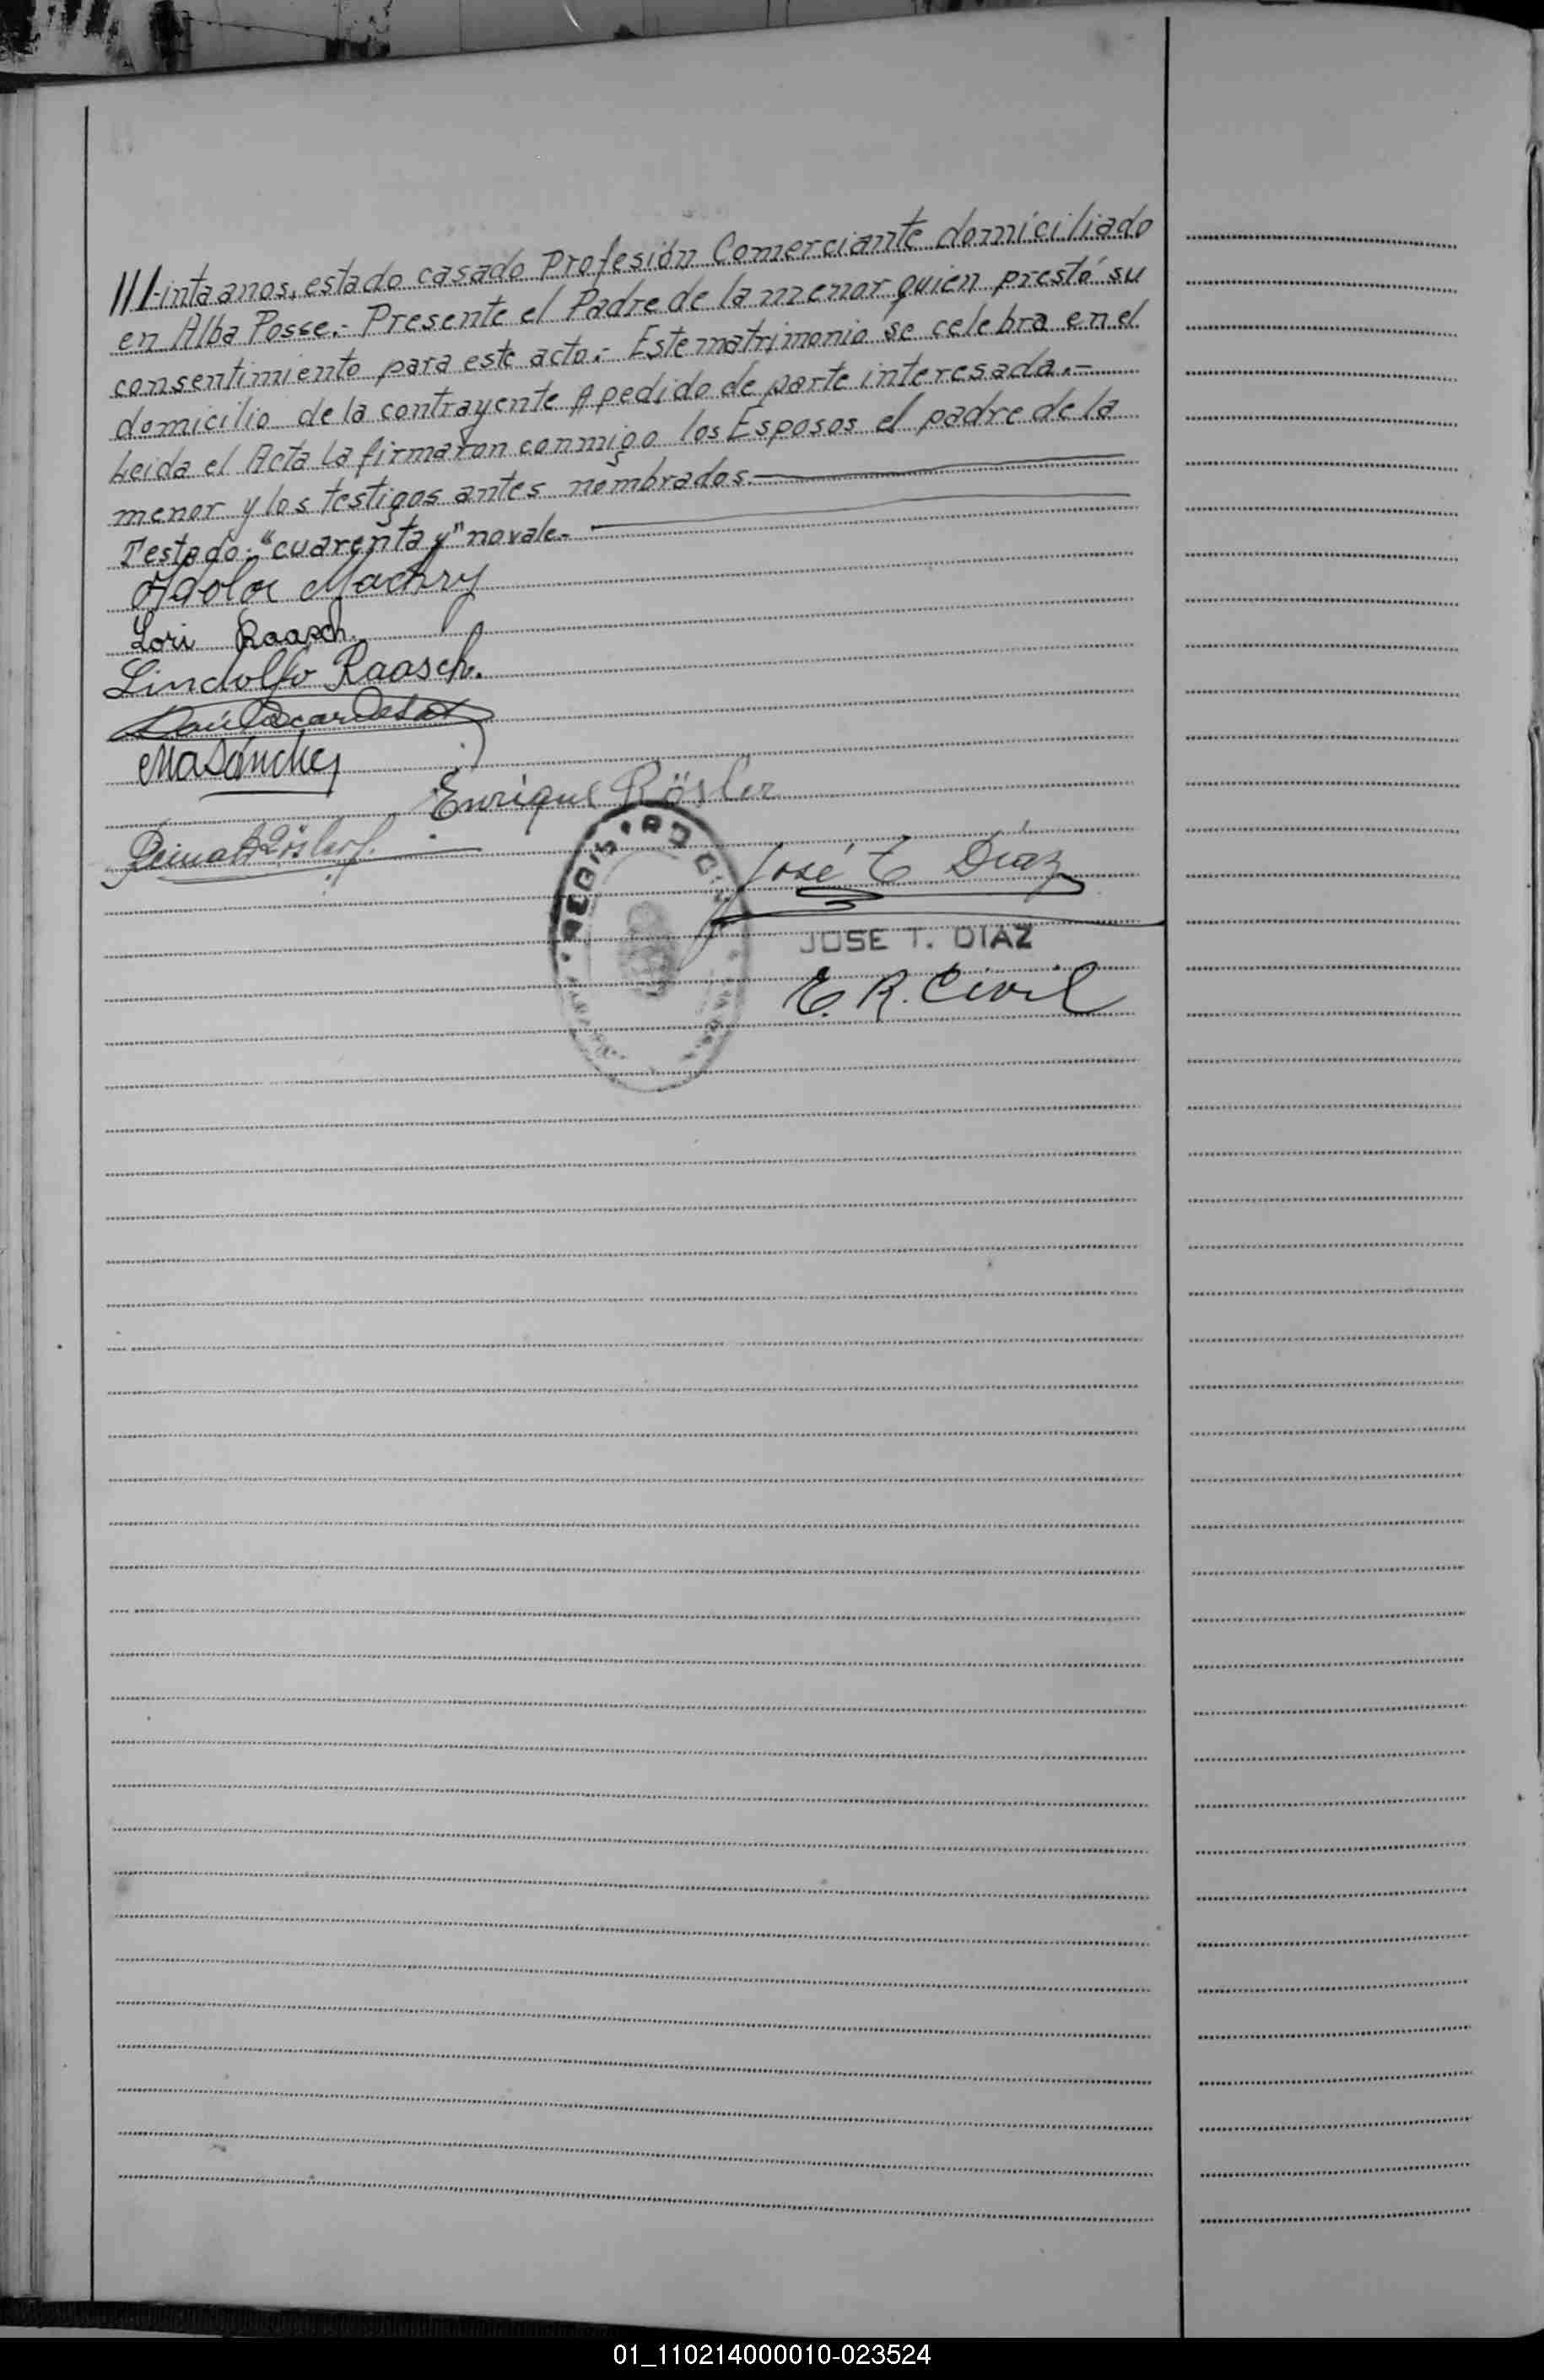 ///inta anos, estado casado Profesión Comerciante domiciliado
en Alba Posse.- Presente el Padre de la menor quien prestó su
consentimiento para este acto.- Este matrimonio se celebra en el
domicilio de la contrayente A pedido de parte interesada.-
Leida el Acta la firmaron conmigo los Esposos el padre de la
menor y los testigos antes nombrados.
Testado: "cuarenta y" no vale.-
Lori Raasch.
Lindolfo Raasch.
Sánchez
Enrique Rösler
José T Diaz
JOSE T. DIAZ
E. R. Civil
01_110214000010-023524